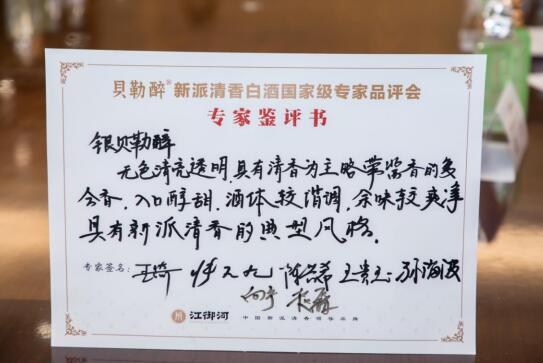 贝勒醉®新派清香白酒国家级专家品评会
专家鉴评书
银贝勒醉
无色清亮透明,具有清香为主略带酱香的复
合香,入口醇甜,酒体较谐调,余味较爽净
具有新派清香的典型风格。
专家签名:
江御河
中国新派清香领领品牌